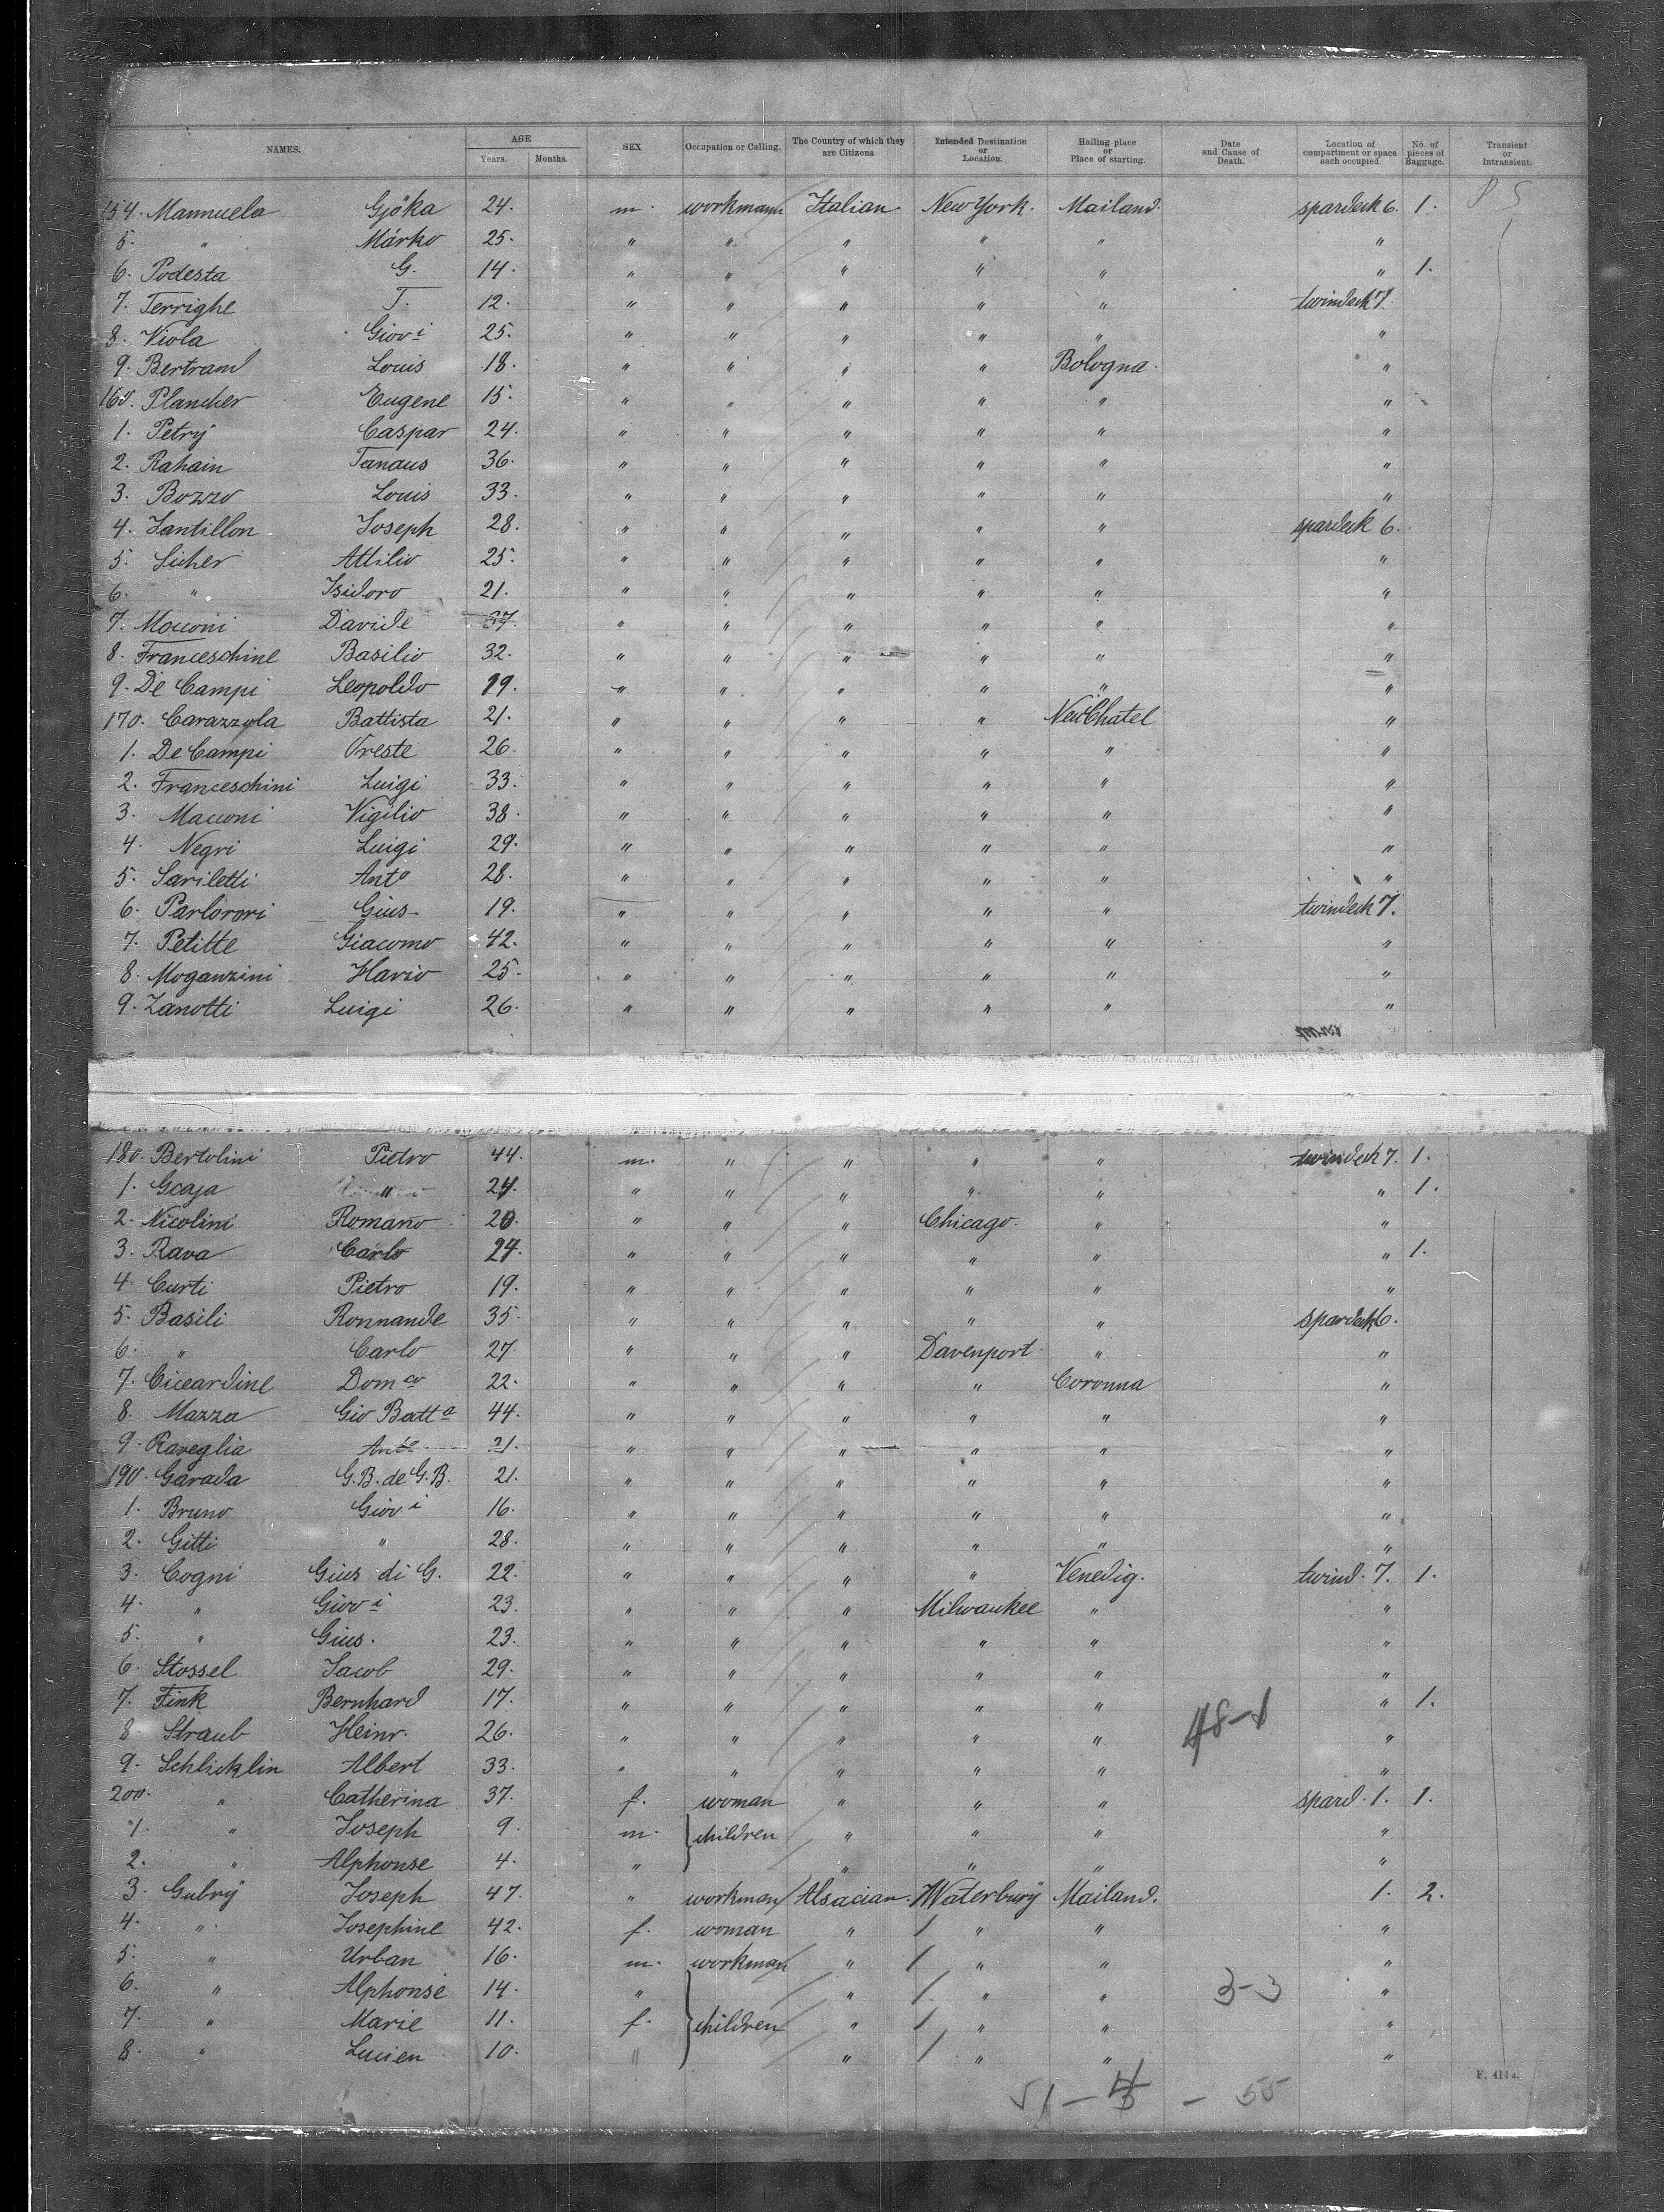 NAMES. AGE Years. Months. SEX Occupation or Calling. The Country of which they are Citizens. Intended Destination or Location. Hailing place or Place of starting. Date and Cause of Death. Location of compartment or space each occupied. No. of pieces of Baggage. Transient or Intransient.
154. Mannuela Gjöka 24. m. workmann Italian New York. Mailand. spardeck 6. 1.
5. " Márko 25. " " " " " "
6. Podesta G. 14. " " " " " " 1.
7. Terrighe T. 12. " " " " " twindeck 7.
8. Viola Giovi 25. " " " " " "
9. Bertrand Louis 18. " " " " Bologna. "
160. Plancher Eugene 15. " " " " " "
1. Petrij Caspar 24. " " " " " "
2. Rahain Tanaus 36. " " " " " "
3. Bozzo Louis 33. " " " " " "
4. Santillon Joseph 28. " " " " " spardeck 6.
5. Sicher Attilio 25. " " " " " "
6. " Isidoro 21. " " " " " "
7. Macconi Davide 37. " " " " " "
8. Franceschine Basilio 32. " " " " " "
9. De Campi Leopoldo 19. " " " " " "
170. Carazzola Battista 21. " " " " NewChatel "
1. De Campi Oreste 26. " " " " " "
2. Franceschini Luigi 33. " " " " " "
3. Macconi Vigilio 38. " " " " " "
4. Negri Luigi 29. " " " " " "
5. Sariletti Anto 28. " " " " " "
6. Parlorori Gius. 19. " " " " " twindeck 7.
7. Petitte Giacomo 42. " " " " " "
8. Moganzini Flavio 25. " " " " " "
9. Zanotti Luigi 26. " " " " " "
180. Bertolini Pietro 44. m. " " " " twindeck 7. 1.
1. Gcaja " 24. " " " " " " 1.
2. Nicolini Romano 20. " " " Chicago. " "
3. Rava Carlo 27. " " " " " " 1.
4. Curti Pietro 19. " " " " " "
5. Basili Ronnande 35. " " " " " spardeck 6.
6. " Carlo 27. " " " Davenport. " "
7. Ciceardine Domco 22. " " " " Coronna "
8. Mazza Gio Batta 44. " " " " " "
9. Raveglia Anto 21. " " " " " "
190. Garada G.B. de G.B. 21. " " " " " "
1. Bruno Giovi 16. " " " " " "
2. Gitti " 28. " " " " " "
3. Cogni Gius di G. 22. " " " " Venedig. twind. 7. 1.
4. " Giovi 23. " " " Milwaukee " "
5. " Gius. 23. " " " " " "
6. Stossel Jacob 29. " " " " " "
7. Fink Bernhard 17. " " " " " " 1.
8. Straub Heinr. 26. " " " " " "
9. Schlicklin Albert 33. " " " " " "
200. " Catherina 37. f. woman " " " spard. 1. 1.
1. " Joseph 9. m. children " " " "
2. " Alphonse 4. " " " " "
3. Gubrij Joseph 47. " workman Alsacian. Waterburij Mailand. 1. 2.
4. " Josephine 42. f. woman " " " "
5. " Urban 16. m. workman " " " "
6. " Alphonse 14. " " " " 3-3 "
7. " Marie 11. f. children " " " "
8. " Lucien 10. " " " " "
F. 414a.